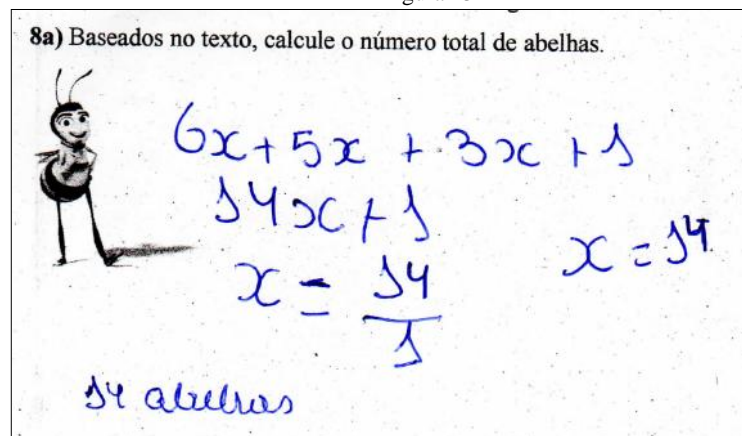 8a) Baseados no texto, calcule o número total de abelhas.
6x + 5x + 3x + 1
14x + 1
x = 14
x = 14/1
14 abelhas